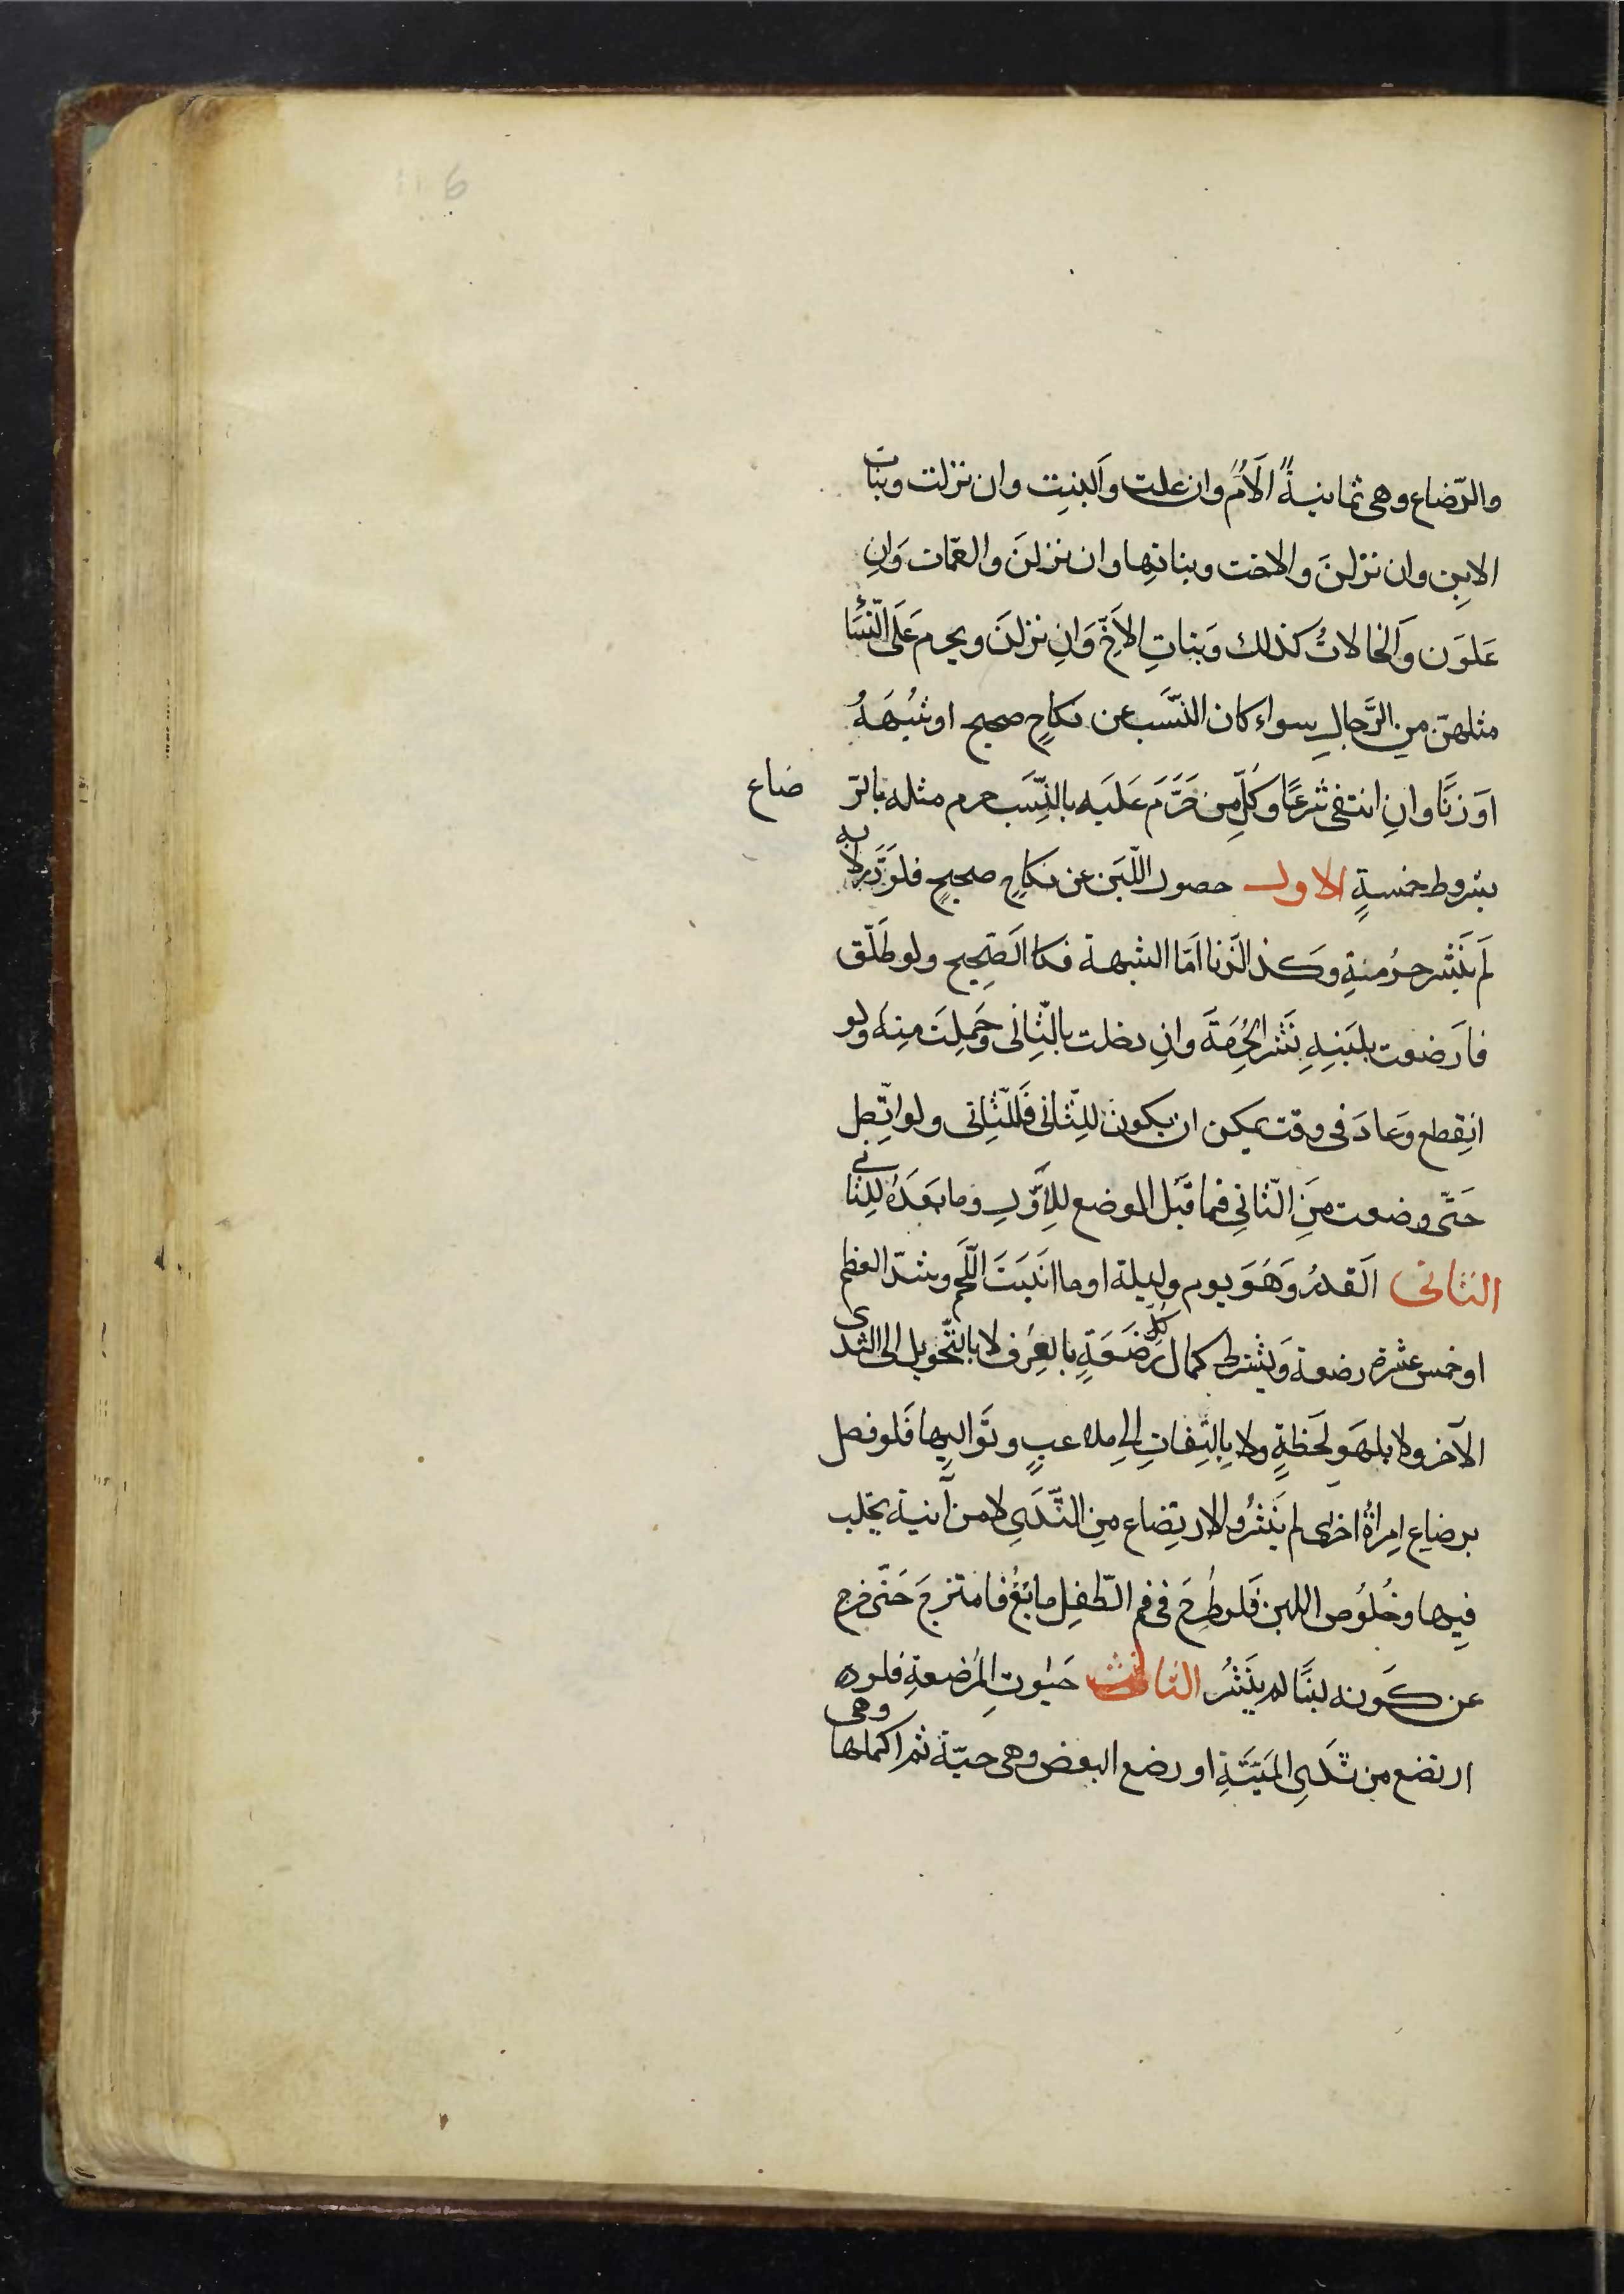 والرّضاع وهى ثمانية الاَمُّ وان علت والَبنِت وان نزلت وبنات
الابِن وان نزلنَ والاخت وبناتِها وان نزلنَ والعمّات وَانِ
عَلوَن وَالخالاتُ كذلك وَبَناتِ الاَخّ وَانِ نزلنَ ويحرم عَلَى النّسَاء
مثلهنّ مِن الرَّجالِ سواء كان النّسَب عن نكاحٍ صحيح او شبُهَهُ
اوَ زنًا وانِ انتفى شرعًا وَكلّ مِن حَرَّمَ عَلَيه بالنِّسَب حرم مثله بالرّ ضاع
بشروط خمسةٍ الاول حصول اللّبَن عن نكاحٍ صحيحٍ فلوَ دَّر لا به
لَم يَنَثر حرُمنةٍ وكذ الَّزنا امّا الشبهة فكا الَصّحِيح ولو طَلّق
فاَرضعت بلبَنِهِ نَشَر الحُرِمَةَ وانِ دخلت بالثّانِى وَحَمِلتَ مِنهُ ولو
انِقطع وَعادَ فى وقت يمكن ان يكون للِثّانى فَللثّانِى ولو اتّصِل
حَتّى وضعت مِنَ الثّانِى فما قَبَل الوضع للِاَوّلِ وما بَعَدَهُ للِثانى
الثانى الَقدرُ وَهُوَ يوم وليلة او ما انَبَتَ اللّحم وشدّ العظم
او خمس عشرة رضعة وَيشترط كمال كلّ رَضَعَةٍ بالعِرُف لا بالتّحَويل الى الثدى
الآخر ولا بلهَو لَحَظةٍ ولا بِالتِفاتِ الىِ ملاعبٍ وتَوالِيها فَلو فصل
برضاعِ امِراةٌ اخرى لم يَنشرُ والارتِضاع مِن الثّدَىِ لا من آنية يحَلب
فِيها وخُلوُص اللبن فَلو طُرِحَ فى فم الطّفِل مائعٌ فامتزجَ حَتّى خرج
عن كَونه لبنًا لم يَنَشرُ الثالث حَيٰوت المرُضعةِ فلو
ارتضع من ثَدَىِ المَيّتَةِ او رضع البعض وهى حيّة ثم اكملها وهى